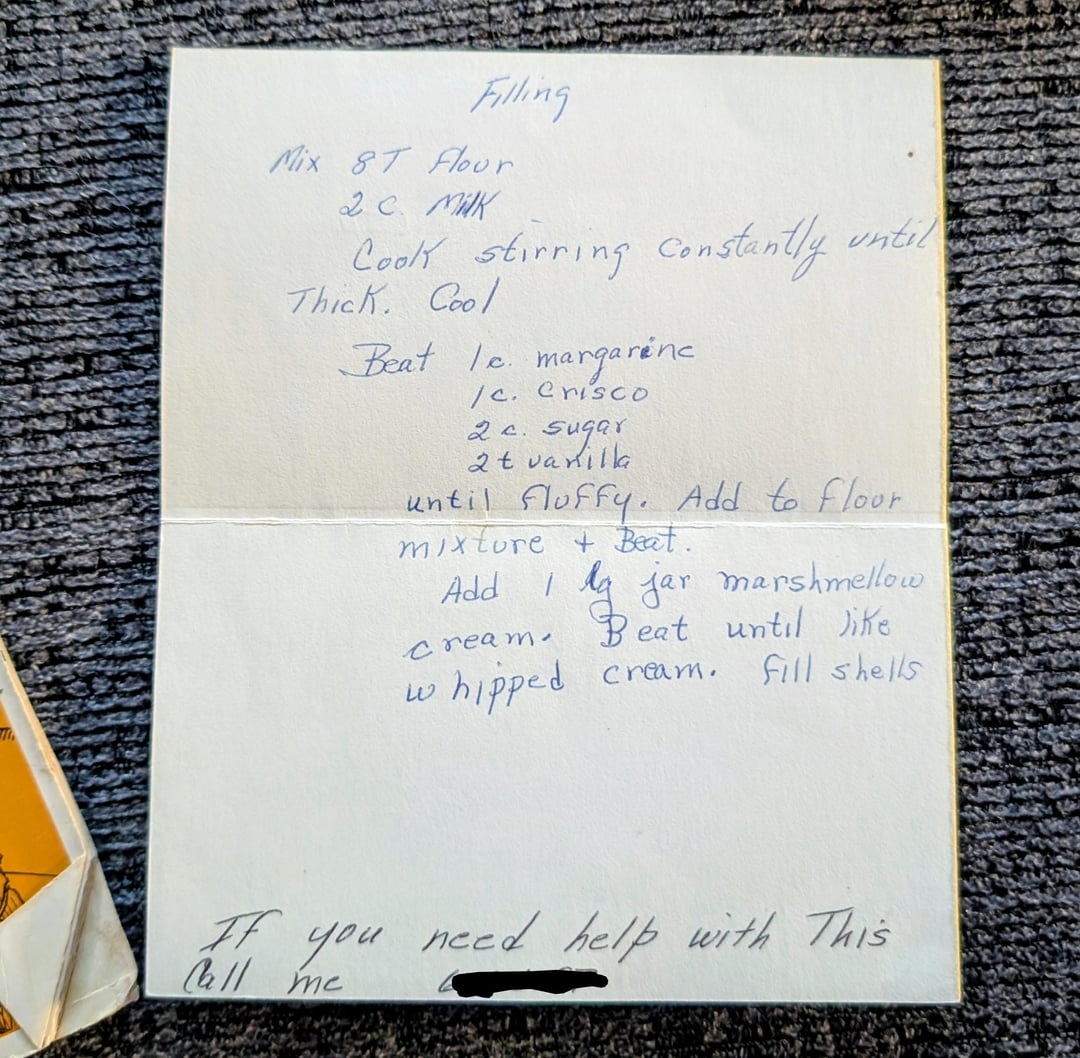 Filling
Mix 8T flour
2 c. Milk
Cook stirring constantly until
Thick. Cool
Beat 1c. margarine
1c. Crisco
2 c. sugar
2 t vanilla
until fluffy. Add to flour
mixture + Beat.
Add 1 lg jar marshmellow
cream. Beat until like
whipped cream. fill shells
If you need help with This
Call me